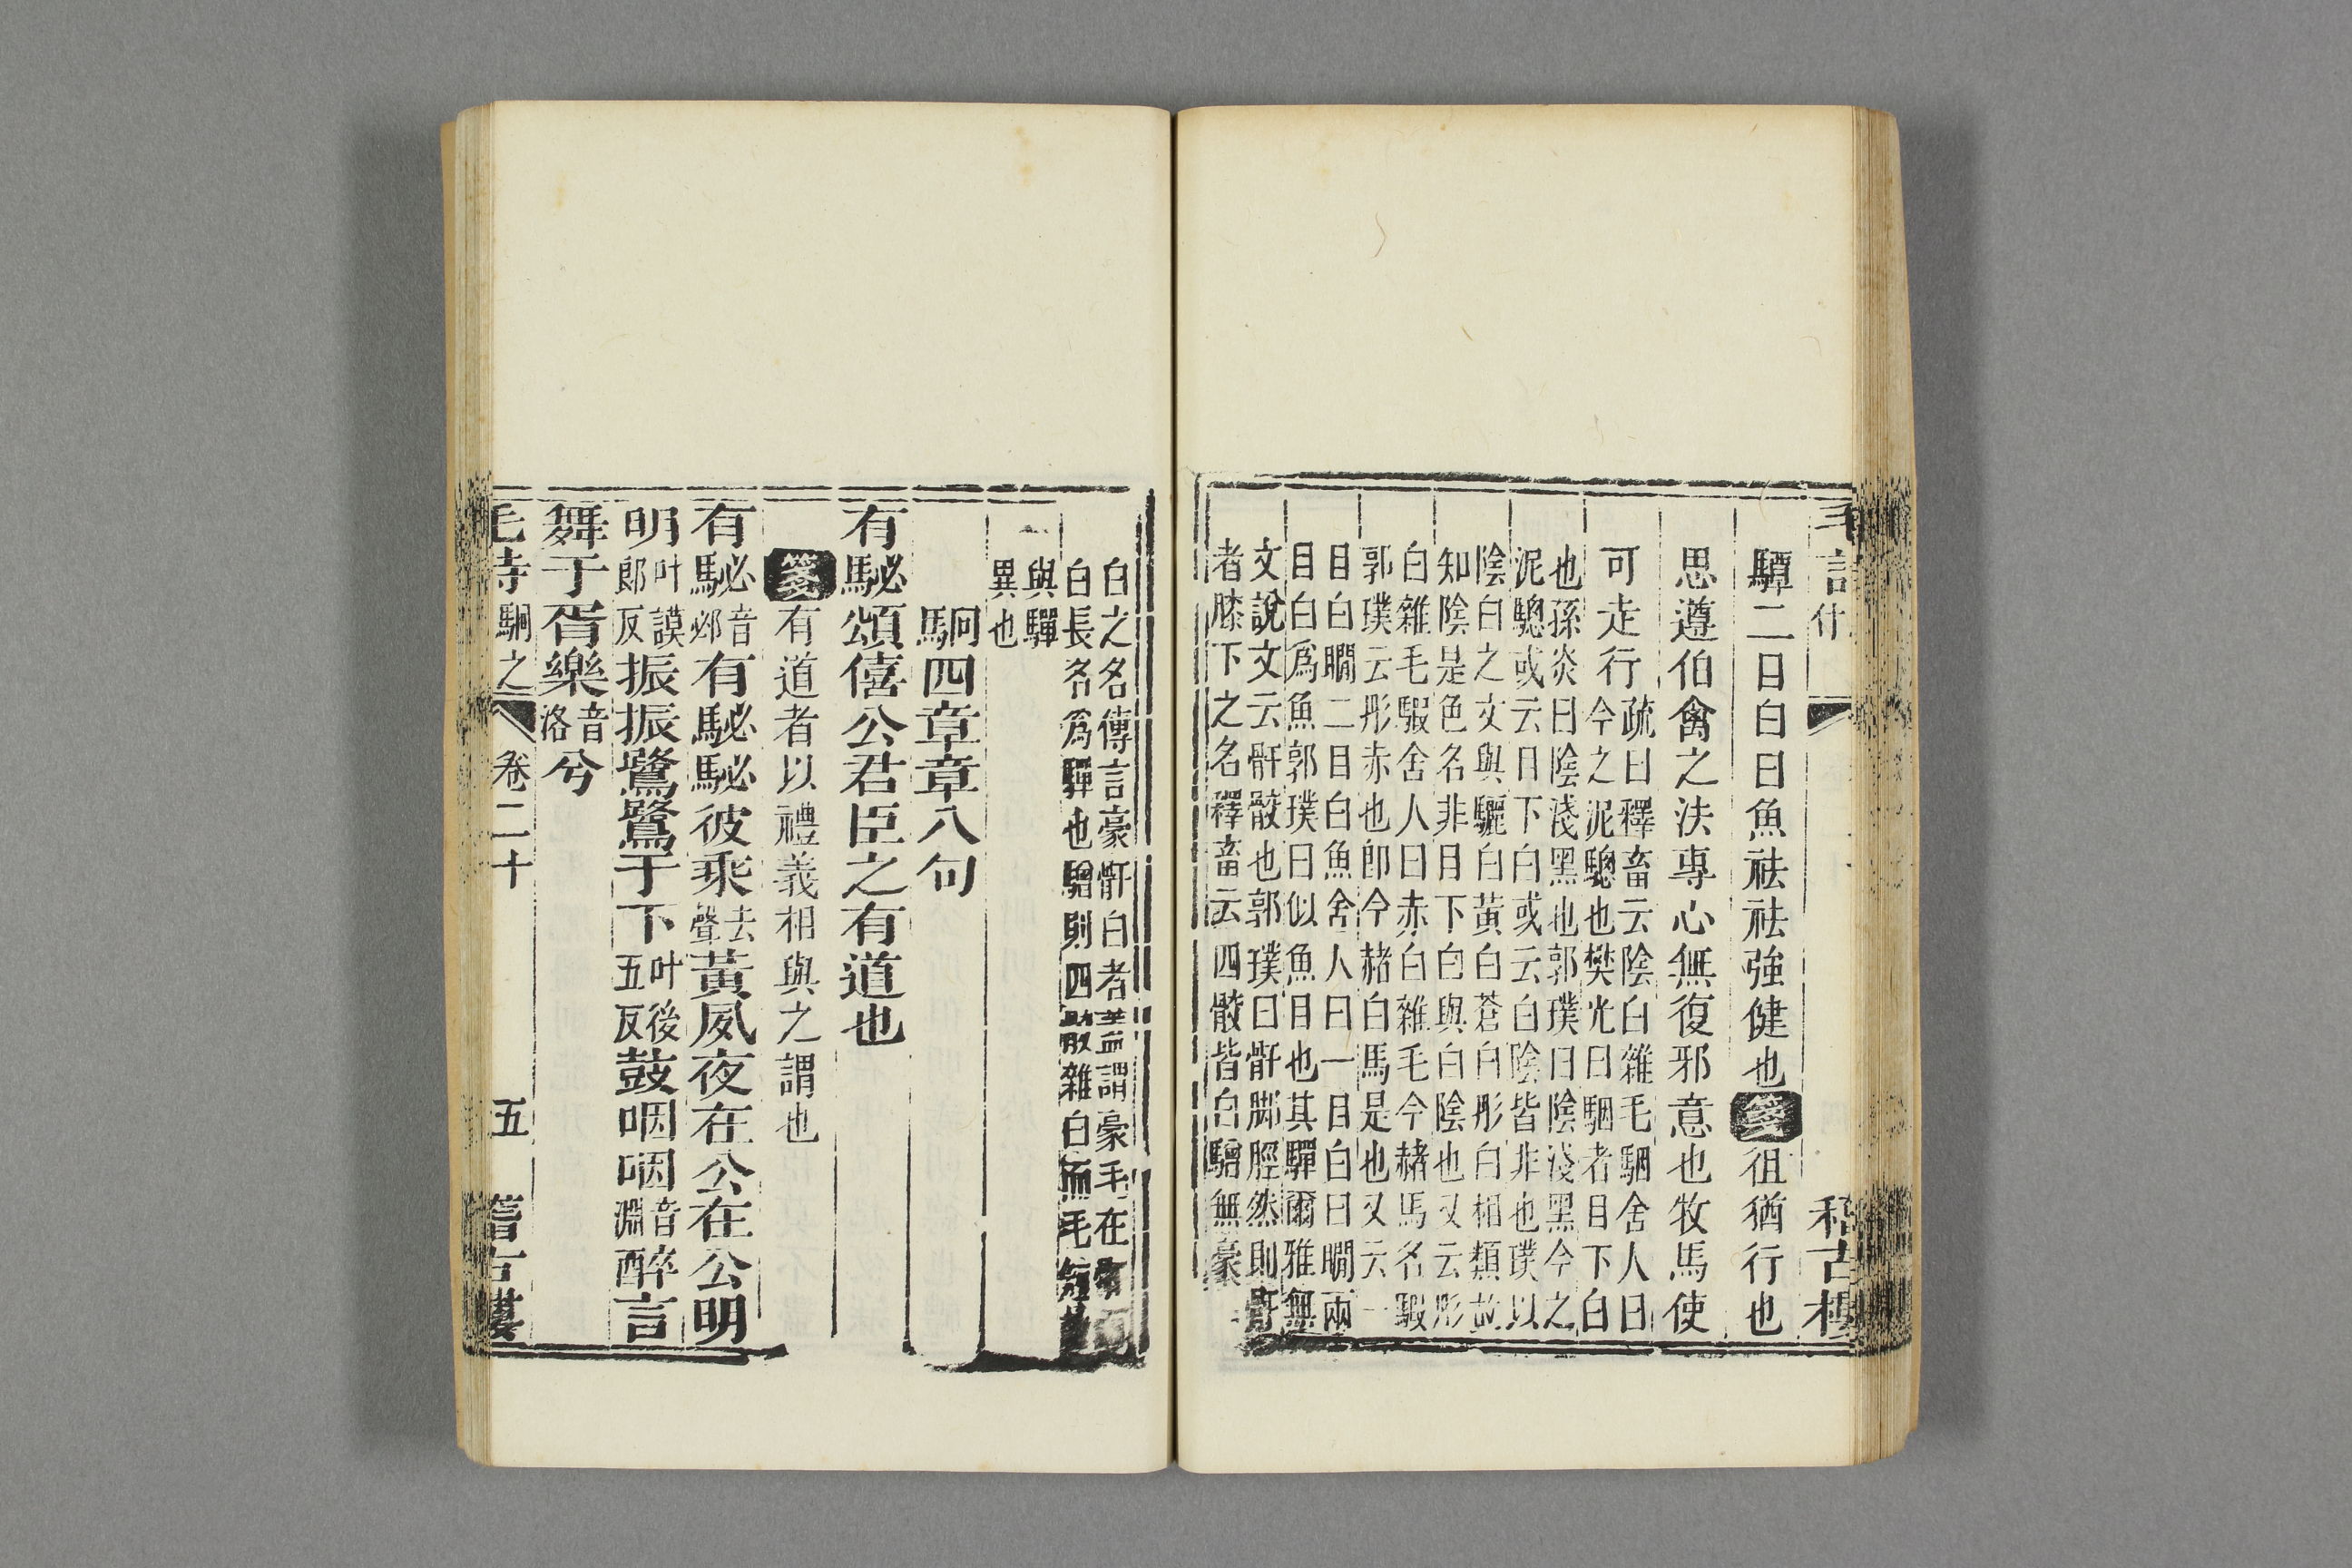 驔二目白曰魚祛祛強健也箋徂猶行也
思遵伯禽之法專心無復邪意也牧馬使
可走行
疏曰釋畜云陰白雜毛駰舍人曰
今之泥驄也樊光曰駰者目下白
也孫炎曰陰淺黑也郭璞曰陰淺黑今之
泥驄或云目下白或云白陰皆非也璞以
陰白之文與驪白黃白蒼白彤白相類故
知陰是色名非目下白與白陰也又云彤
白雜毛騢舍人曰赤白雜毛今赭馬名騢
郭璞云彤赤也即今赭白馬是也又云一
目白瞯二目白魚舍人曰一目白曰瞯兩
目白爲魚郭璞曰似魚目也其驔爾雅無
文說文云骭骹也郭璞曰骭脚脛然則骭
者膝下之名釋畜云四骹皆白驓無豪
白之名傳言豪骭白者蓋謂豪毛在骭
白長名爲驔也驓則四骹雜白而毛短
與驔
異也
駉四章章八句
有駜頌僖公君臣之有道也
箋有道者以禮義相與之謂也
有駜音邲有駜駜彼乘去聲黃夙夜在公在公明
明叶謨郎反振振鷺鷺于下叶後五反鼓咽咽音淵醉言
舞于胥樂音洛兮
毛詩 駉之 卷二十 五 稽古樓